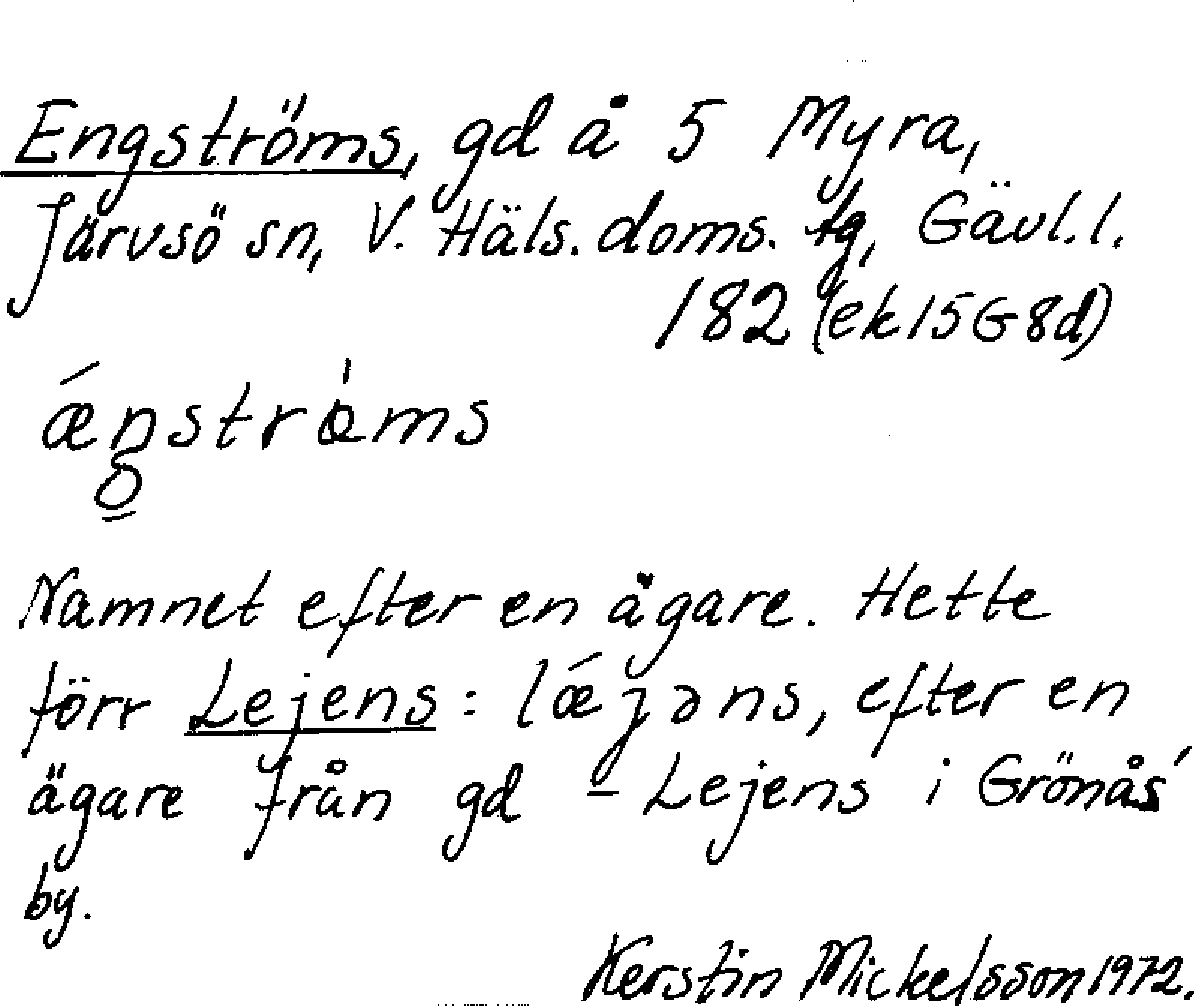 Engströms, gd å 5 Myra,
Järvsö sn, V. Häls. doms. tg, Gävl. l.
182 (ek 15G8d)
ǽŋströ́ms
g
Namnet efter en ägare. Hette
förr Lejens: lǽjəns, efter en
ägare från gd - Lejens i Grönås'
by.
Kerstin Mickelsson 1972.